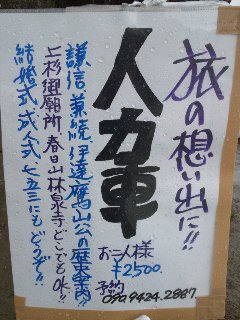 旅の想い出に!!
人力車
お二人様
¥2,500.
予約
090.9424.2887
謙信 兼続 伊達 鷹山公の歴史案内!!
上杉御廟所、春日山林泉寺どこでもOK!!
結婚式、成人式、七五三にもどうぞ!!